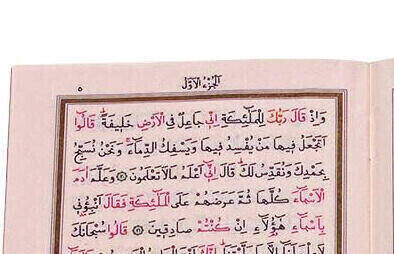 الجزء الاول
٥
وَإِذْ قَالَ رَبُّكَ لِلْمَلٰٓئِكَةِ اِنّٖى جَاعِلٌ فِى الْاَرْضِ خَلٖيفَةً قَالُٓوا
اَتَجْعَلُ فٖيهَا مَنْ يُفْسِدُ فٖيهَا وَيَسْفِكُ الدِّمَٓاءَ وَنَحْنُ نُسَبِّحُ
بِحَمْدِكَ وَنُقَدِّسُ لَكَ قَالَ اِنّٖٓى اَعْلَمُ مَا لَا تَعْلَمُونَ وَعَلَّمَ اٰدَمَ
الْاَسْمَٓاءَ كُلَّهَا ثُمَّ عَرَضَهُمْ عَلَى الْمَلٰٓئِكَةِ فَقَالَ اَنْبِؤُ۫نٖى
بِاَسْمَٓاءِ هٰٓؤُ۬لَٓاءِ اِنْ كُنْتُمْ صَادِقٖينَ قَالُوا سُبْحَانَكَ